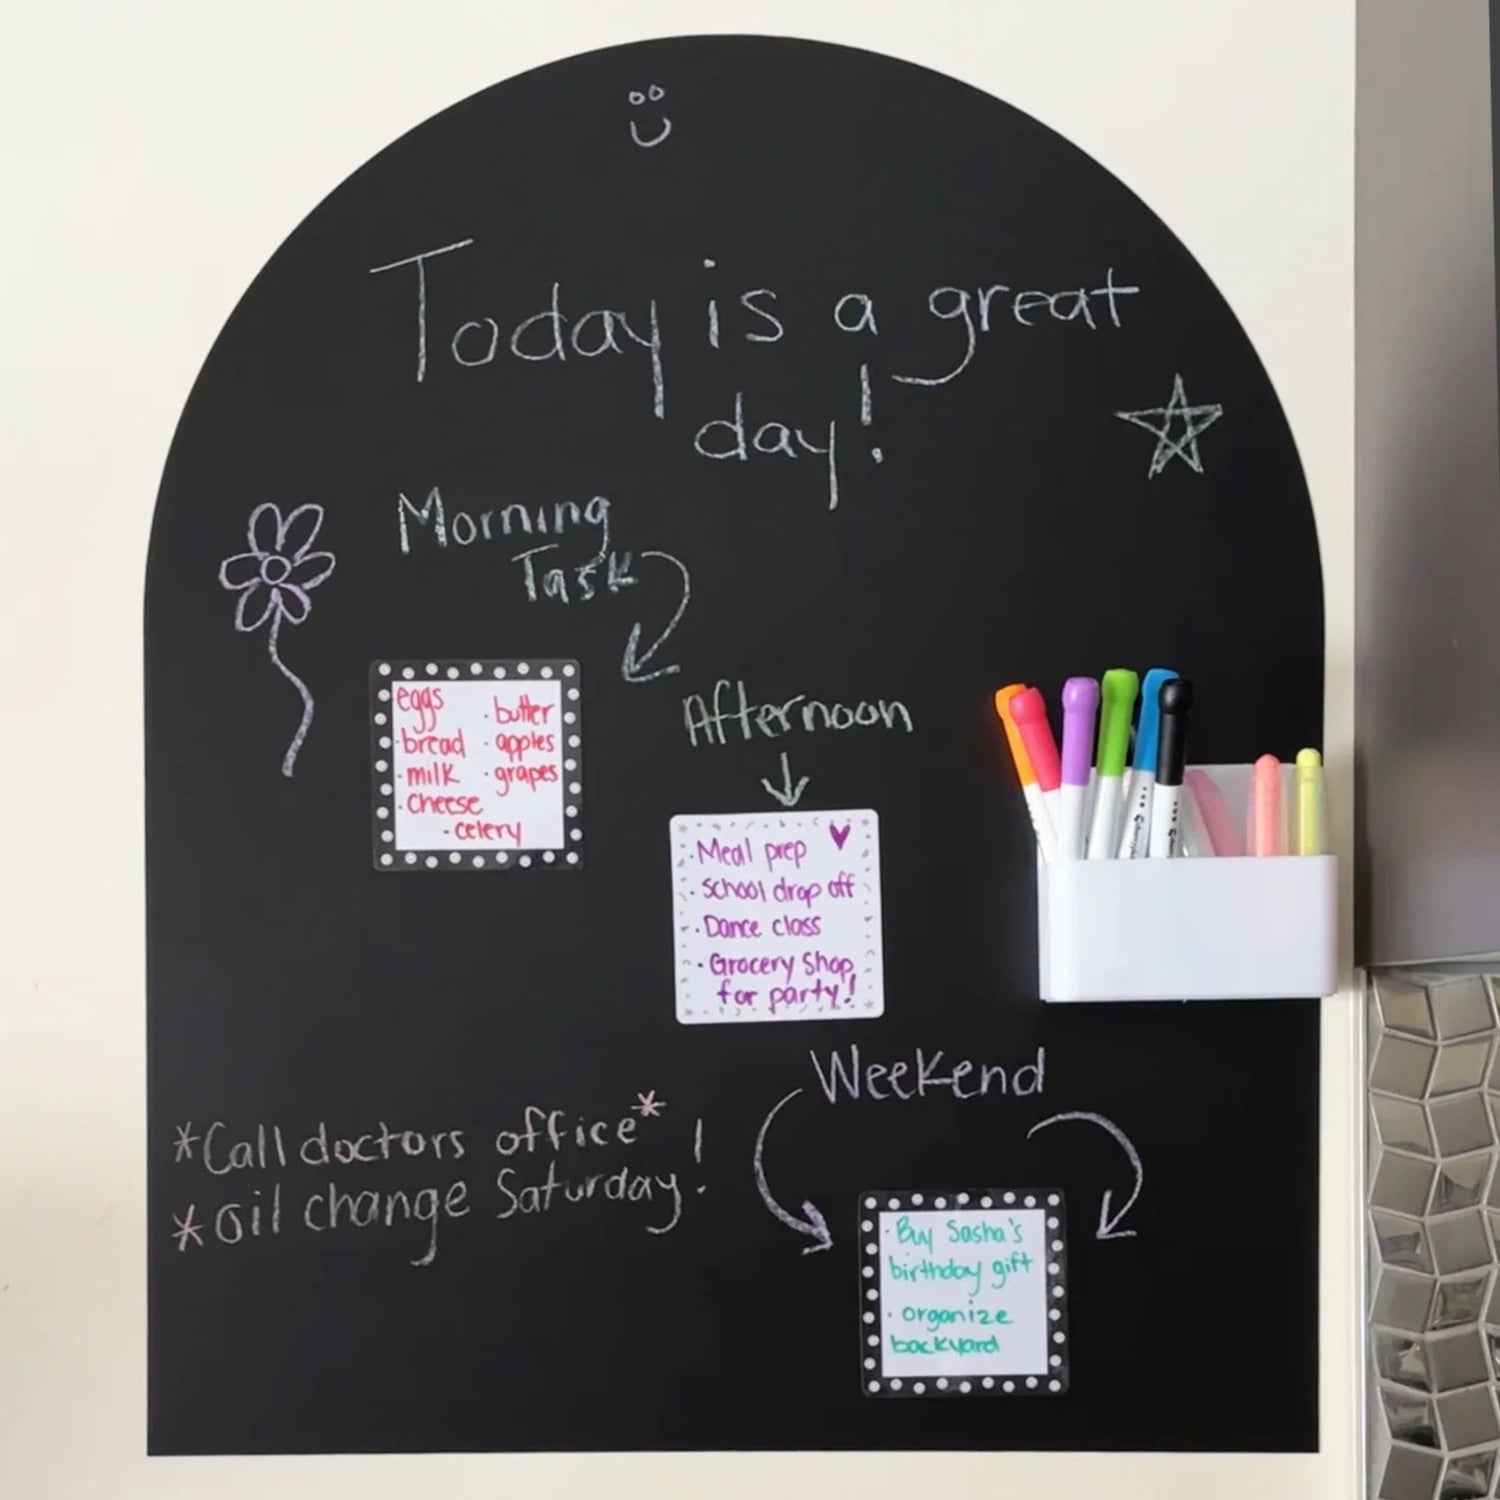 Today is a great
day!
Morning
Task
eggs
· bread
· milk
· cheese
· celery
· butter
· apples
· grapes
Afternoon
· Meal prep
· School drop off
· Dance class
· Grocery Shop
for party!
Weekend
*Call doctors office*
*Oil change Saturday!
· Buy Sasha's
birthday gift
· organize
backyard